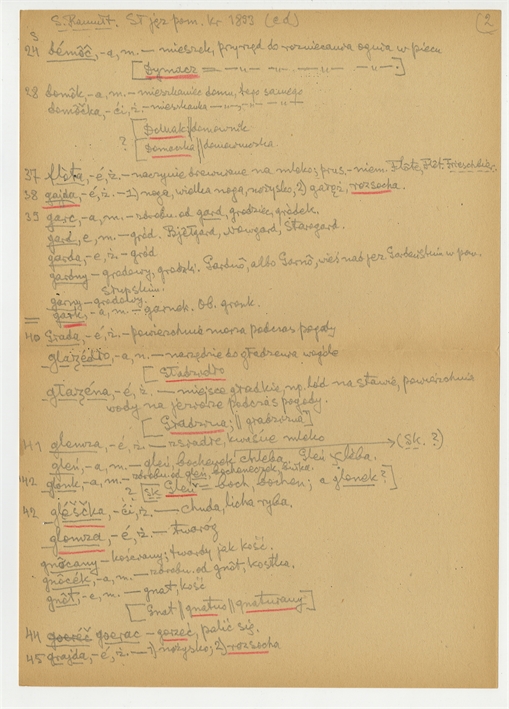 S. Ramułt. St jęz pom. kr 1893 (ed) (2
S
24 démôč, -a, m. — mieszek, przyrząd do rozniecania ognia w piecu
[Dymacz = —„— —„— —„— —„—.]
28 domôk, -a, m. — mieszkaniec domu, tego samego
domôčka, -ći, ż. — mieszkanka —„—„—„—
? [Domak || domownik
Domaczka || domowniczka.
37 flota, -é, ż. — naczynie drewniane na mleko; prus.-niem. Flote, Flöt.
38 gajda, -é, ż. — 1) noga, wielka noga, nożysko, 2) gałęź, rozsocha.
39 garc, -a, m. — zdrobn. od gard, grodziec, gródek.
gard, e, m. — gród. Bjêłgard, Nowgard, Starogard.
garda, -é, ż. — gród
gardny — grodowy, grodzki. Gardnô, albo Garnô, wieś nad jez. Gardeńskim w pow.
słupskim.
garny — grodowy.
gark, -a, m. — garnek. Ob. gronk.
40 -é, ż. — powierzchnia morza podczas pogody
glazédło, -a, n. — narzędzie do gładzenia wogóle
[Gładzidło
głazéna, -é, ż. — miejsce gładkie, np. lód na stawie, powierzchnia
wody na jeziorze podczas pogody.
[Gładzizna || gradzizna]
41 glomza, -é, ż. — zsiadłe, kwaśne mleko → (Sk. ?)
gleń, -a, m. — gleń, bochenek chleba. Gleń chleba.
42 glónk, -a, m. — zdrobn. od gleń, bocheneczek, bułka.
? [Sk. Gleń = boch, bochen; a glonek?]
42 gléščka, -ći, ż. — chuda, licha ryba.
glomza, -é, ż. — twaróg
gnôcany — kościany; twardy jak kość.
gnôcék, -a, m. — zdrobn. od gnôt, kostka.
gnôt, -e, m. — gnat, kość
[Gnat || gnatno || gnaturany]
44 gorzec, palić się.
45 grajda, -é, ż. — 1) nożysko, 2) rozsocha